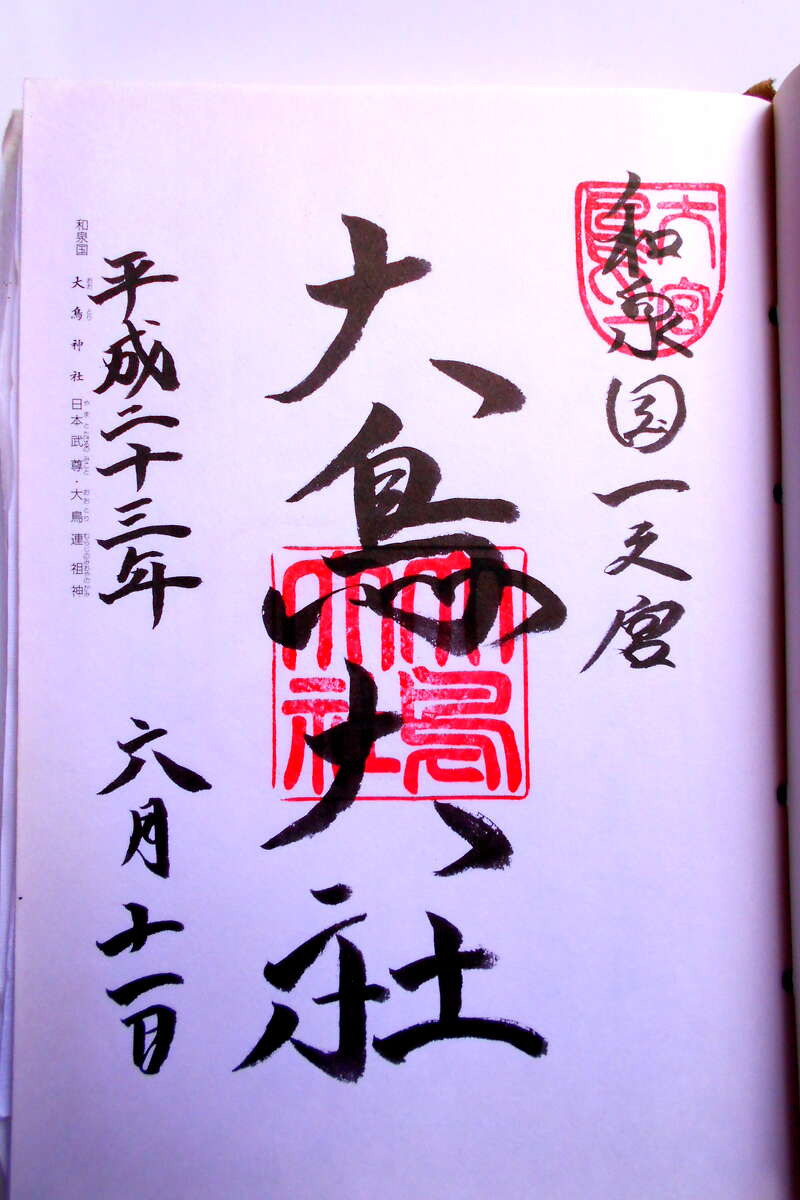 和泉国一之宮
大鳥大社
大鳥
大社
平成二十三年 六月十一日
和泉国 大鳥神社 日本武尊・大鳥連祖神